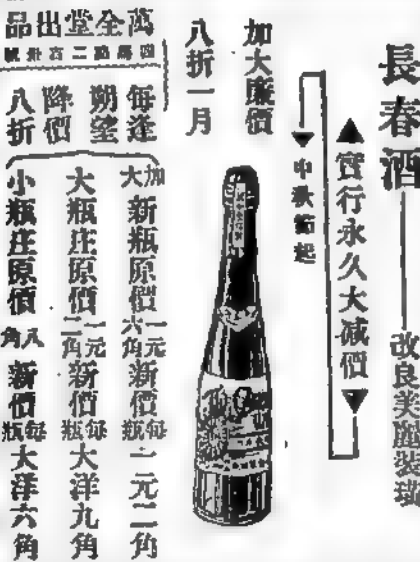 長春酒
改良美麗裝璜
▲實行永久大減價▼
▼中秋節起
加大廉價
八折一月
萬全堂出品
每逢
朔望
降價
八折
加大新瓶原價一元六角新價每瓶一元二角
大瓶庄原價一元二角新價每瓶大洋九角
小瓶庄原價八角新價每瓶大洋六角